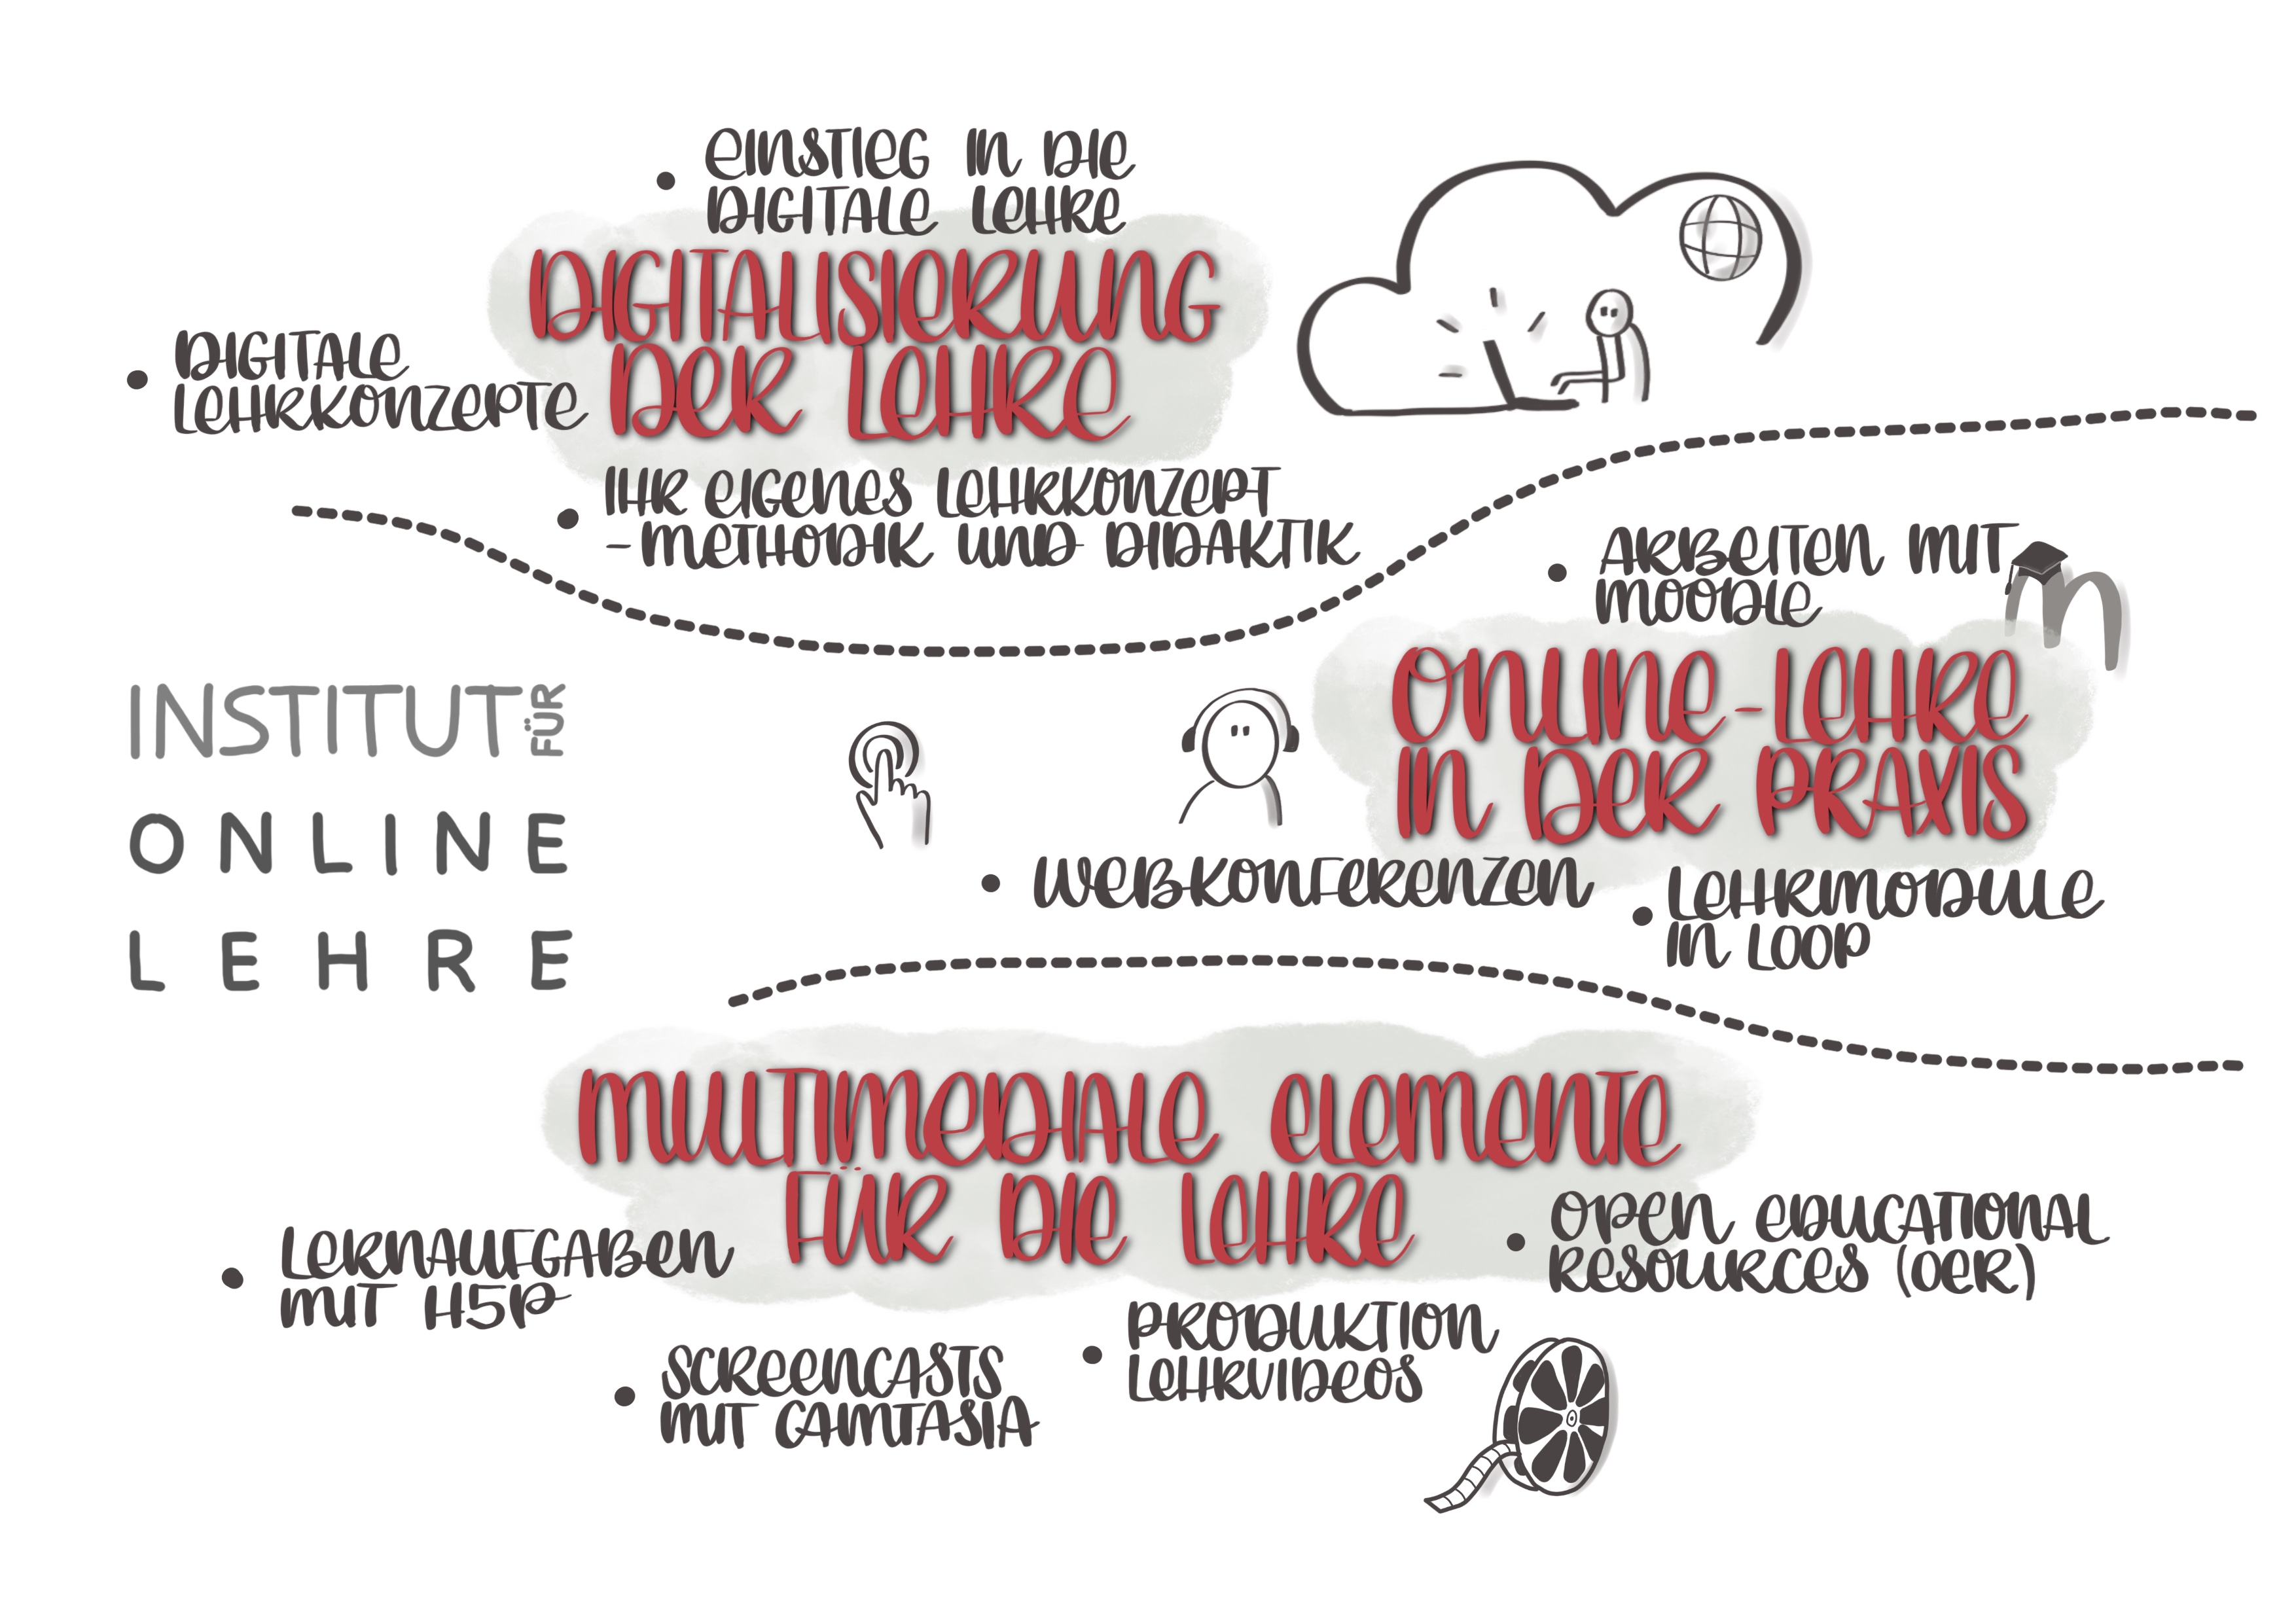 • EINSTIEG IN DIE
DIGITALE LEHRE
DIGITALISIERUNG
DER LEHRE
• DIGITALE
LEHRKONZEPTE
• IHR EIGENES LEHRKONZEPT
- METHODIK UND DIDAKTIK
• ARBEITEN MIT
MOODLE
m
ONLINE-LEHRE
IN DER PRAXIS
• WEBKONFERENZEN
• LEHRMODULE
IN LOOP
INSTITUT FÜR
ONLINE
LEHRE
MULTIMEDIALE ELEMENTE
FÜR DIE LEHRE
• LERNAUFGABEN
MIT H5P
• SCREENCASTS
MIT CAMTASIA
• PRODUKTION
LEHRVIDEOS
• OPEN EDUCATIONAL
RESOURCES (OER)